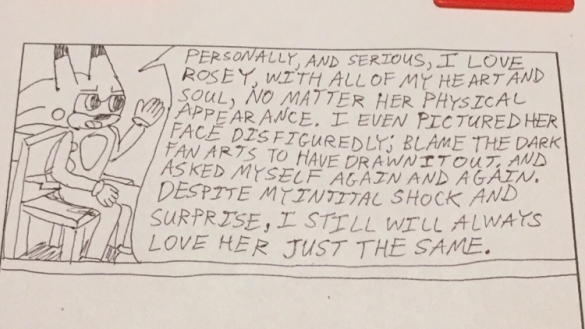 PERSONALLY, AND SERIOUS, I LOVE
ROSEY, WITH ALL OF MY HEART AND
SOUL, NO MATTER HER PHYSICAL
APPEARANCE. I EVEN PICTURED HER
FACE DISFIGUREDLY; BLAME THE DARK
FAN ARTS TO HAVE DRAWN IT OUT, AND
ASKED MYSELF AGAIN AND AGAIN.
DESPITE MY INTITAL SHOCK AND
SURPRISE, I STILL WILL ALWAYS
LOVE HER JUST THE SAME.